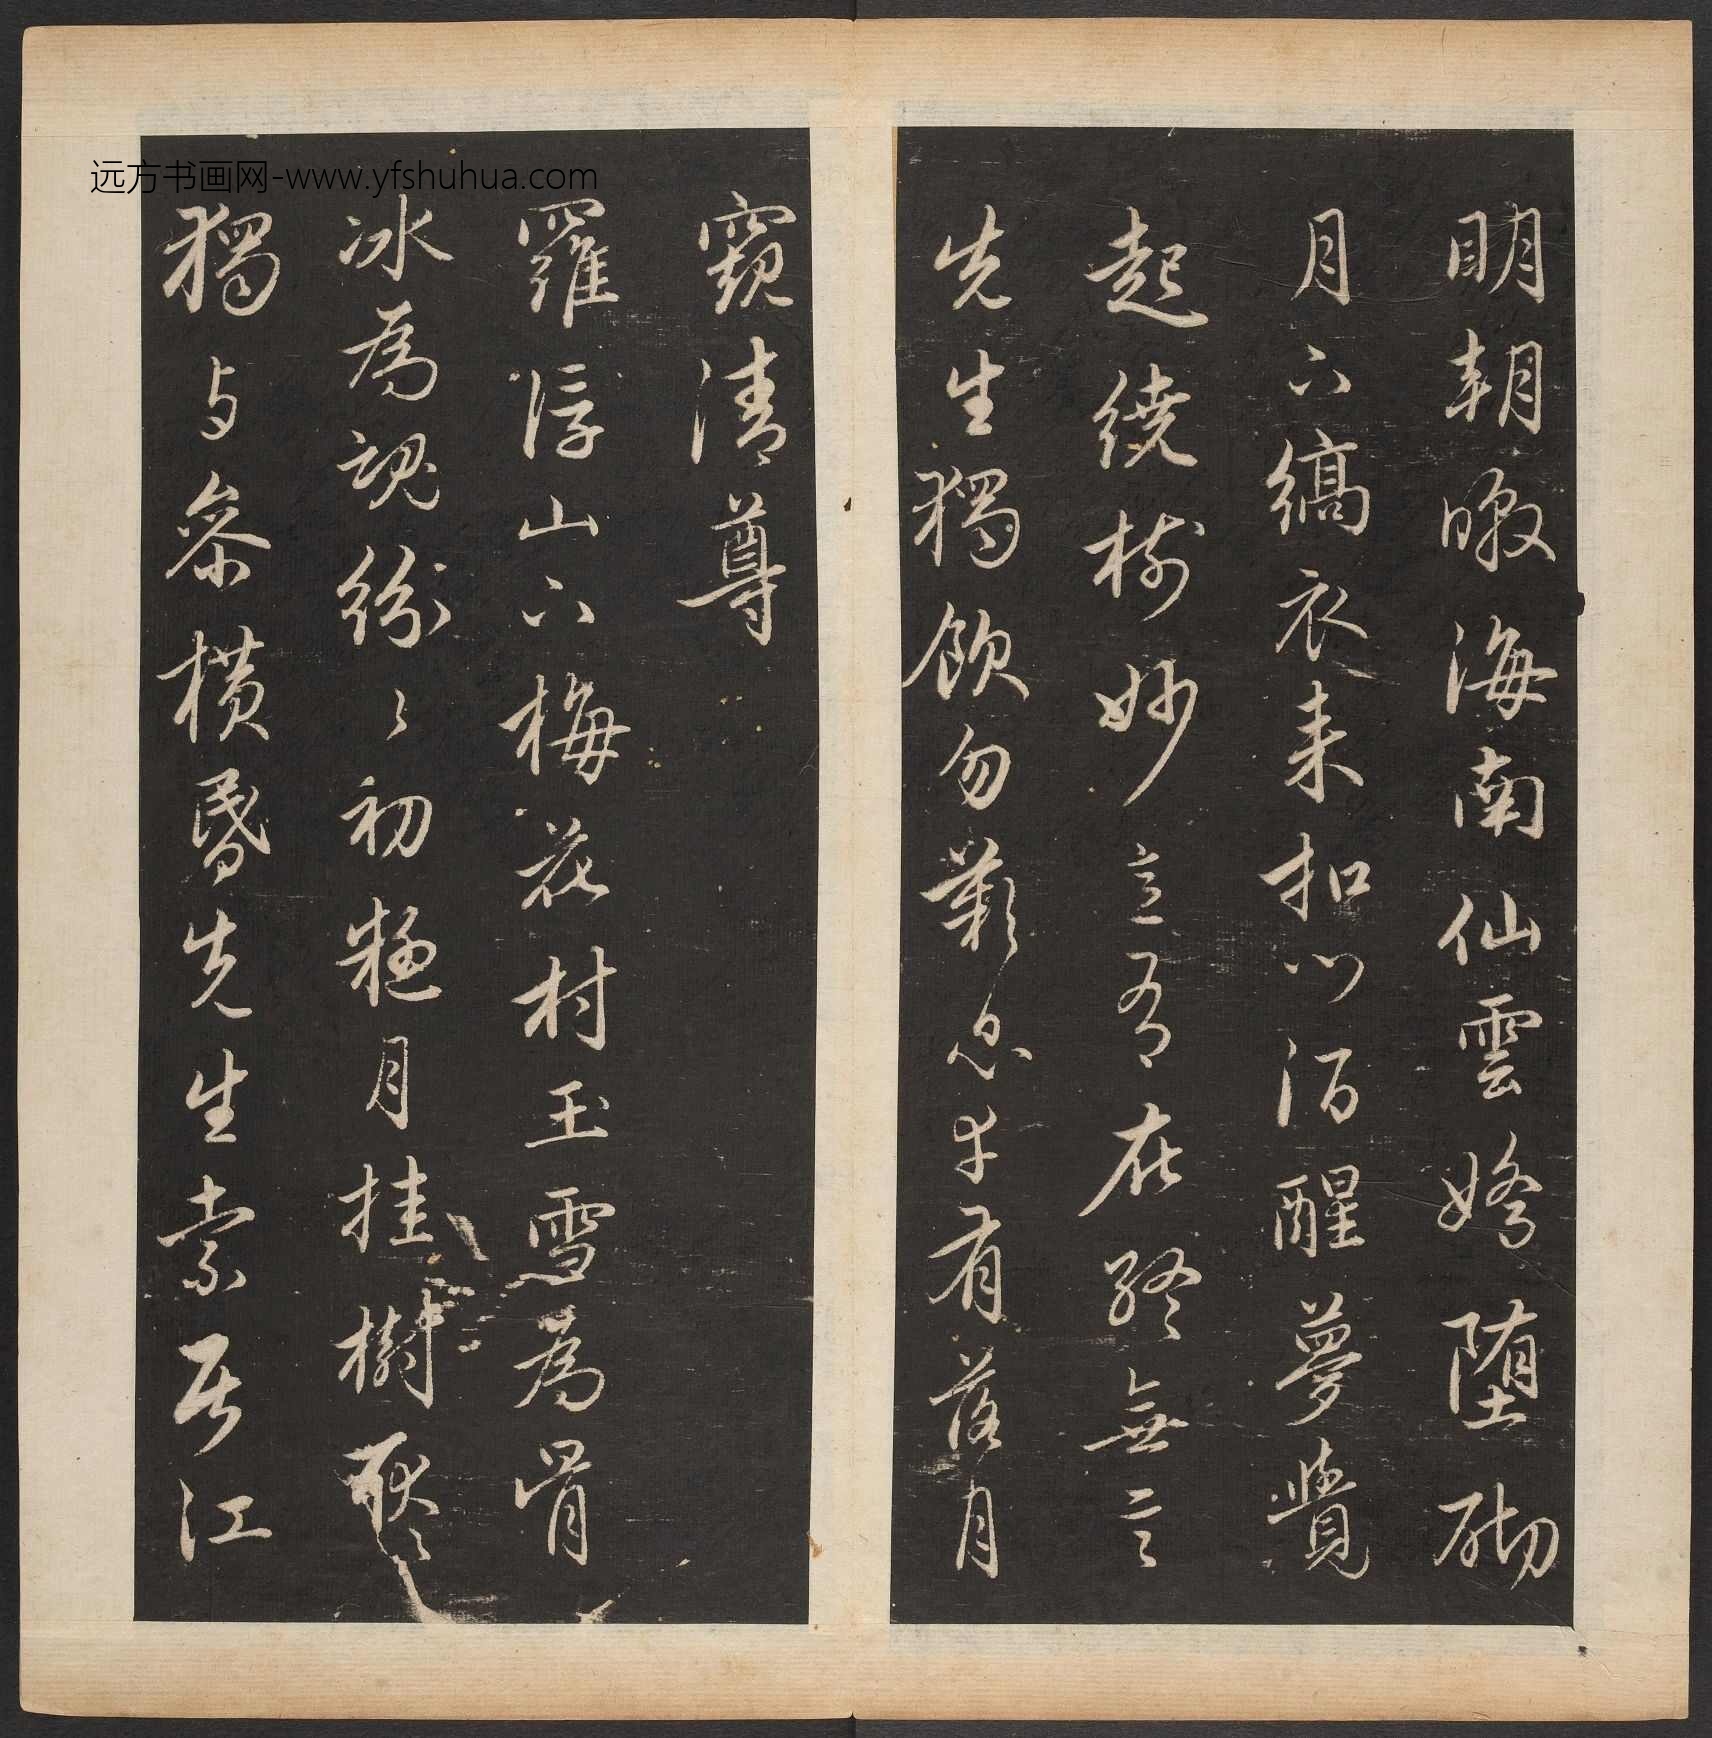 远方书画网-www.yfshuhua.com
明朝暾海南仙雲嬌堕砌
月下縞衣来扣門酒醒夢覺
起繞樹妙意有在終無言
先生獨飲勿歎息幸有落月
窺清尊
羅浮山下梅花村玉雪為骨
冰為魂紛々初疑月挂樹耿々
獨与參横昏先生索居江